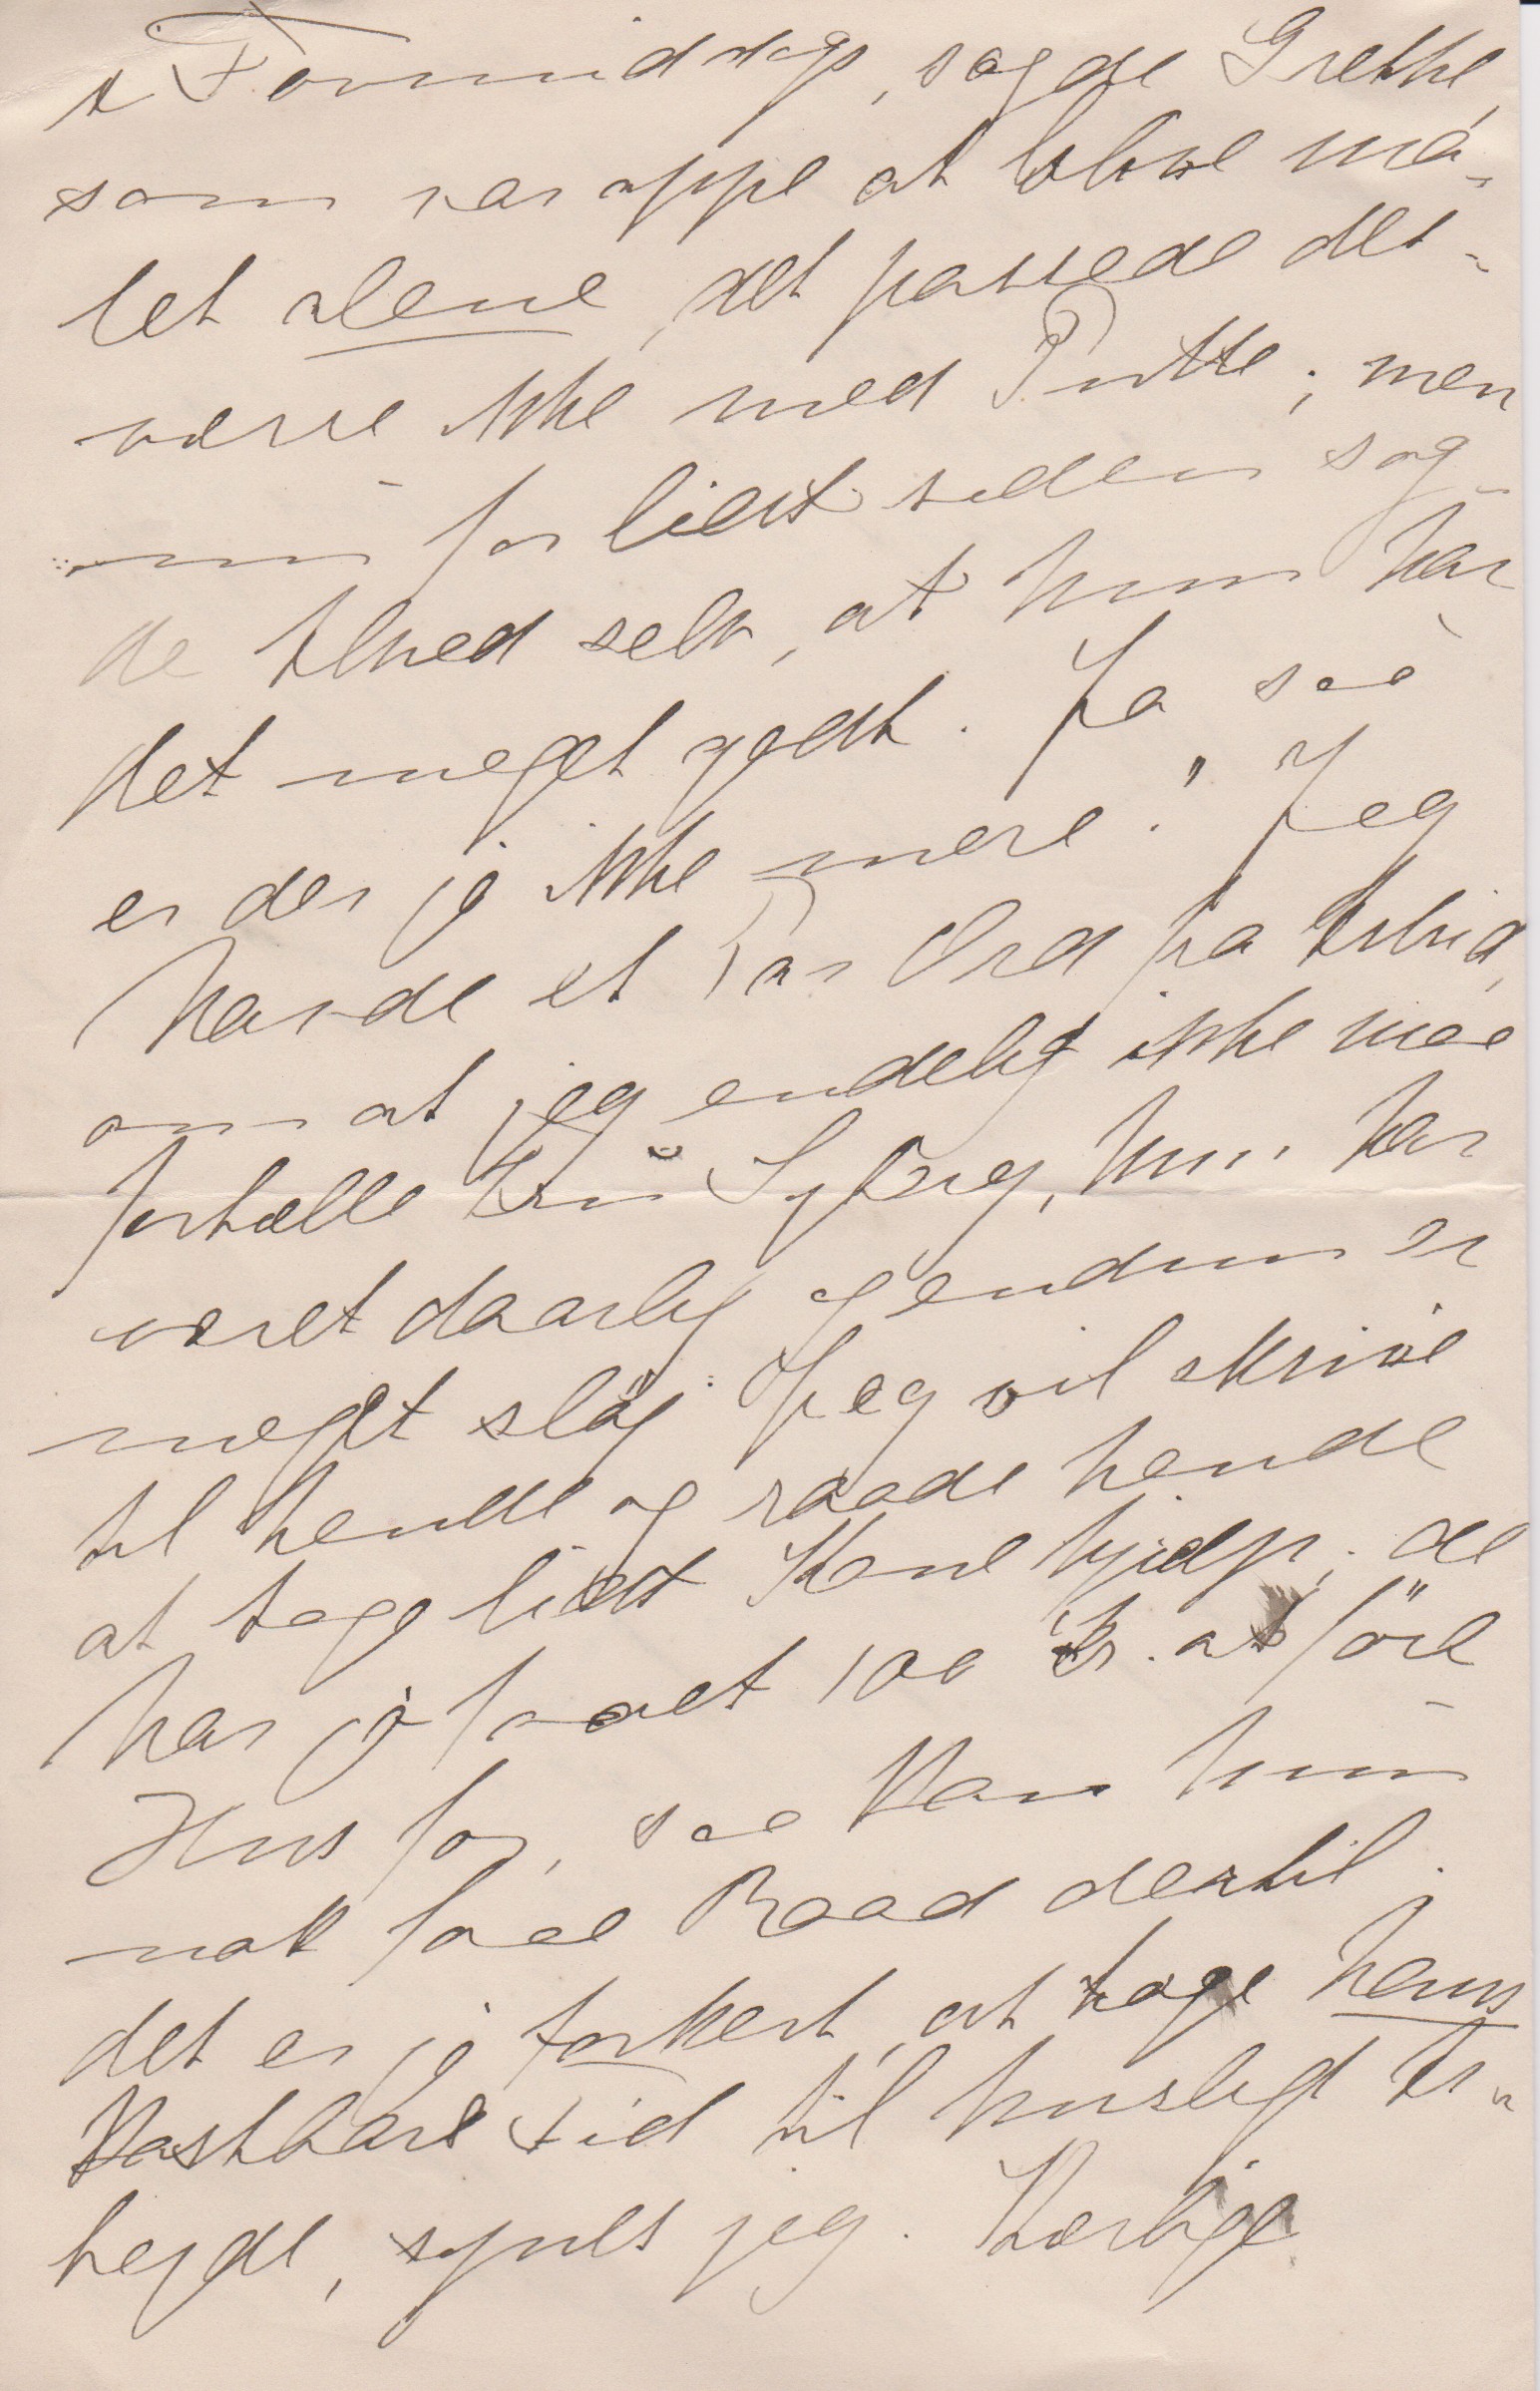 i Formiddags, sagde Grethe,
som var oppe at blive må-
let alene, det passede des-
værre ikke med Putte; men
nu for lidt siden sag-
de Elhed selv, at hun har
det meget godt. Ja saa
er der jo ikke mere." Jeg
havde et Par Ord fra Astrid,
om at jeg endelig ikke maa
fortælle Fru Syberg, hun har
været daarlig og endnu er
meget sløj. Jeg vil skrive
til hende og raade hende
at tage lidt Konehjælp; de
har jo faaet 100 Kr. at føre
Hus for, saa kan hun
nok faae Raad dertil.
det er jo forkert, at tage hans
kostbare Tid til husligt Ar-
bejde, synes jeg. Kærlige